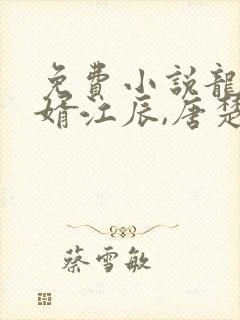 免費小說龍
婿江辰,唐楚
蔡雪敏